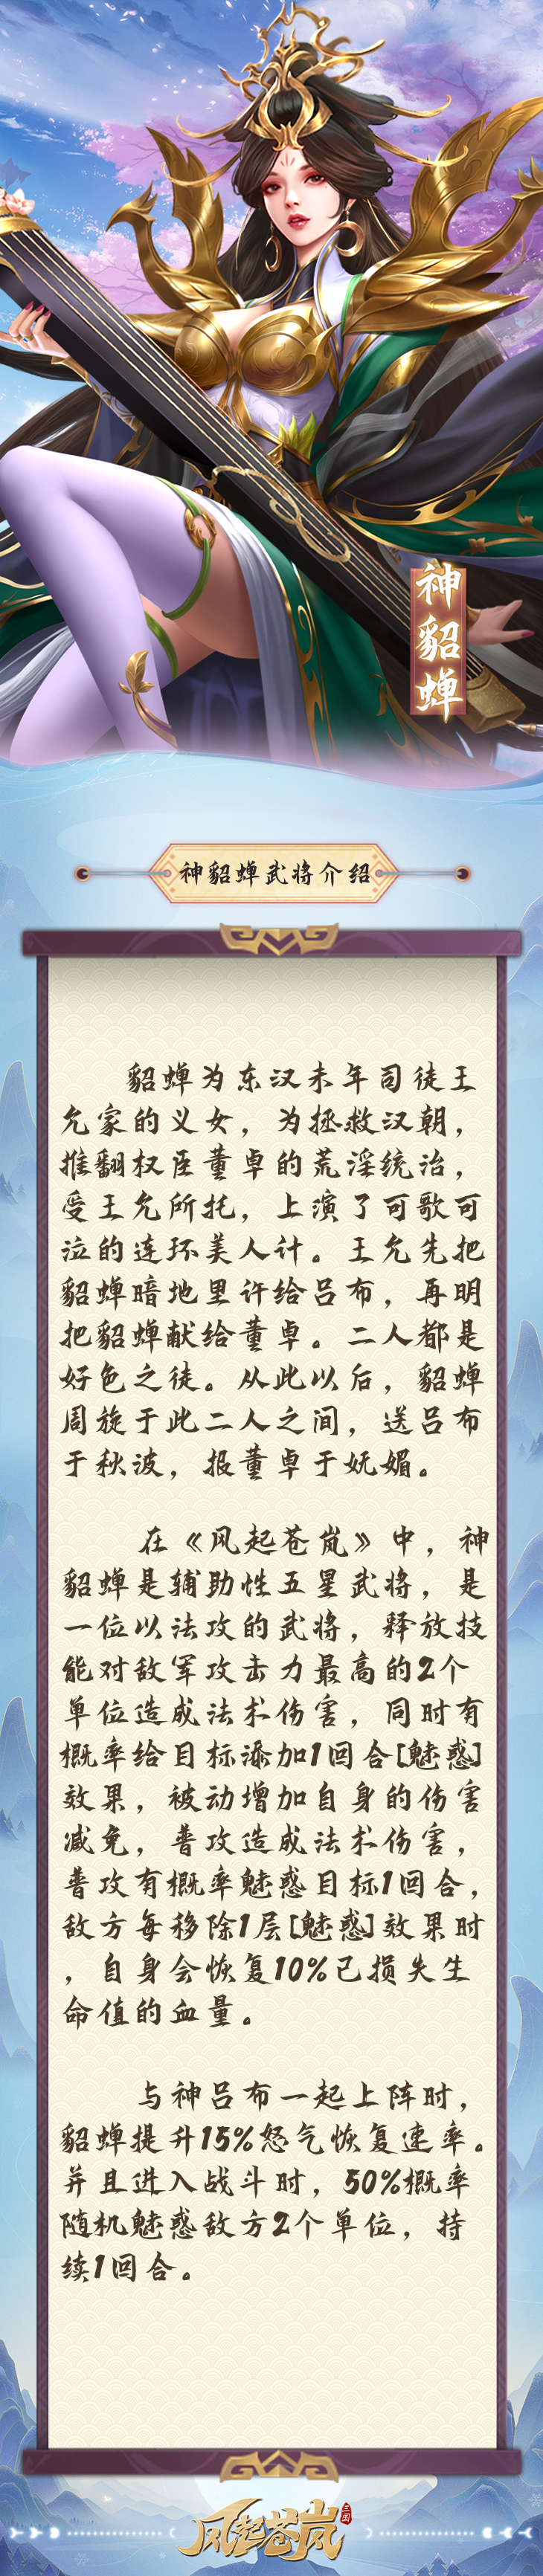 神貂蝉
神貂蝉武将介绍
貂蝉为东汉末年司徒王
允家的义女，为拯救汉朝，
推翻权臣董卓的荒淫统治，
受王允所托，上演了可歌可
泣的连环美人计。王允先把
貂蝉暗地里许给吕布，再明
把貂蝉献给董卓。二人都是
好色之徒。从此以后，貂蝉
周旋于此二人之间，送吕布
于秋波，报董卓于妩媚。
在《风起苍岚》中，神
貂蝉是辅助性五星武将，是
一位以法攻的武将，释放技
能对敌军攻击力最高的2个
单位造成法术伤害，同时有
概率给目标添加1回合[魅惑]
效果，被动增加自身的伤害
减免，普攻造成法术伤害，
普攻有概率魅惑目标1回合，
敌方每移除1层[魅惑]效果时
，自身会恢复10%已损失生
命值的血量。
与神吕布一起上阵时，
貂蝉提升15%怒气恢复速率。
并且进入战斗时，50%概率
随机魅惑敌方2个单位，持
续1回合。
风起苍岚
三国